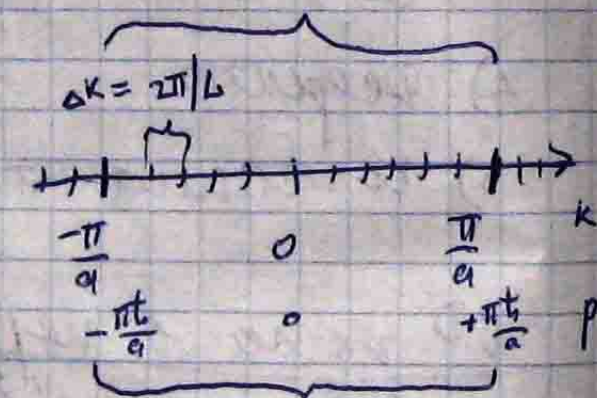 ΔK = 2π/L
-π/a 0 π/a K
-πħ/a 0 +πħ/a P